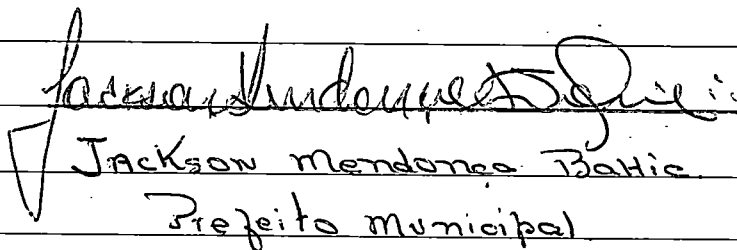 Jackson Mendonça Bahia
Prefeito Municipal